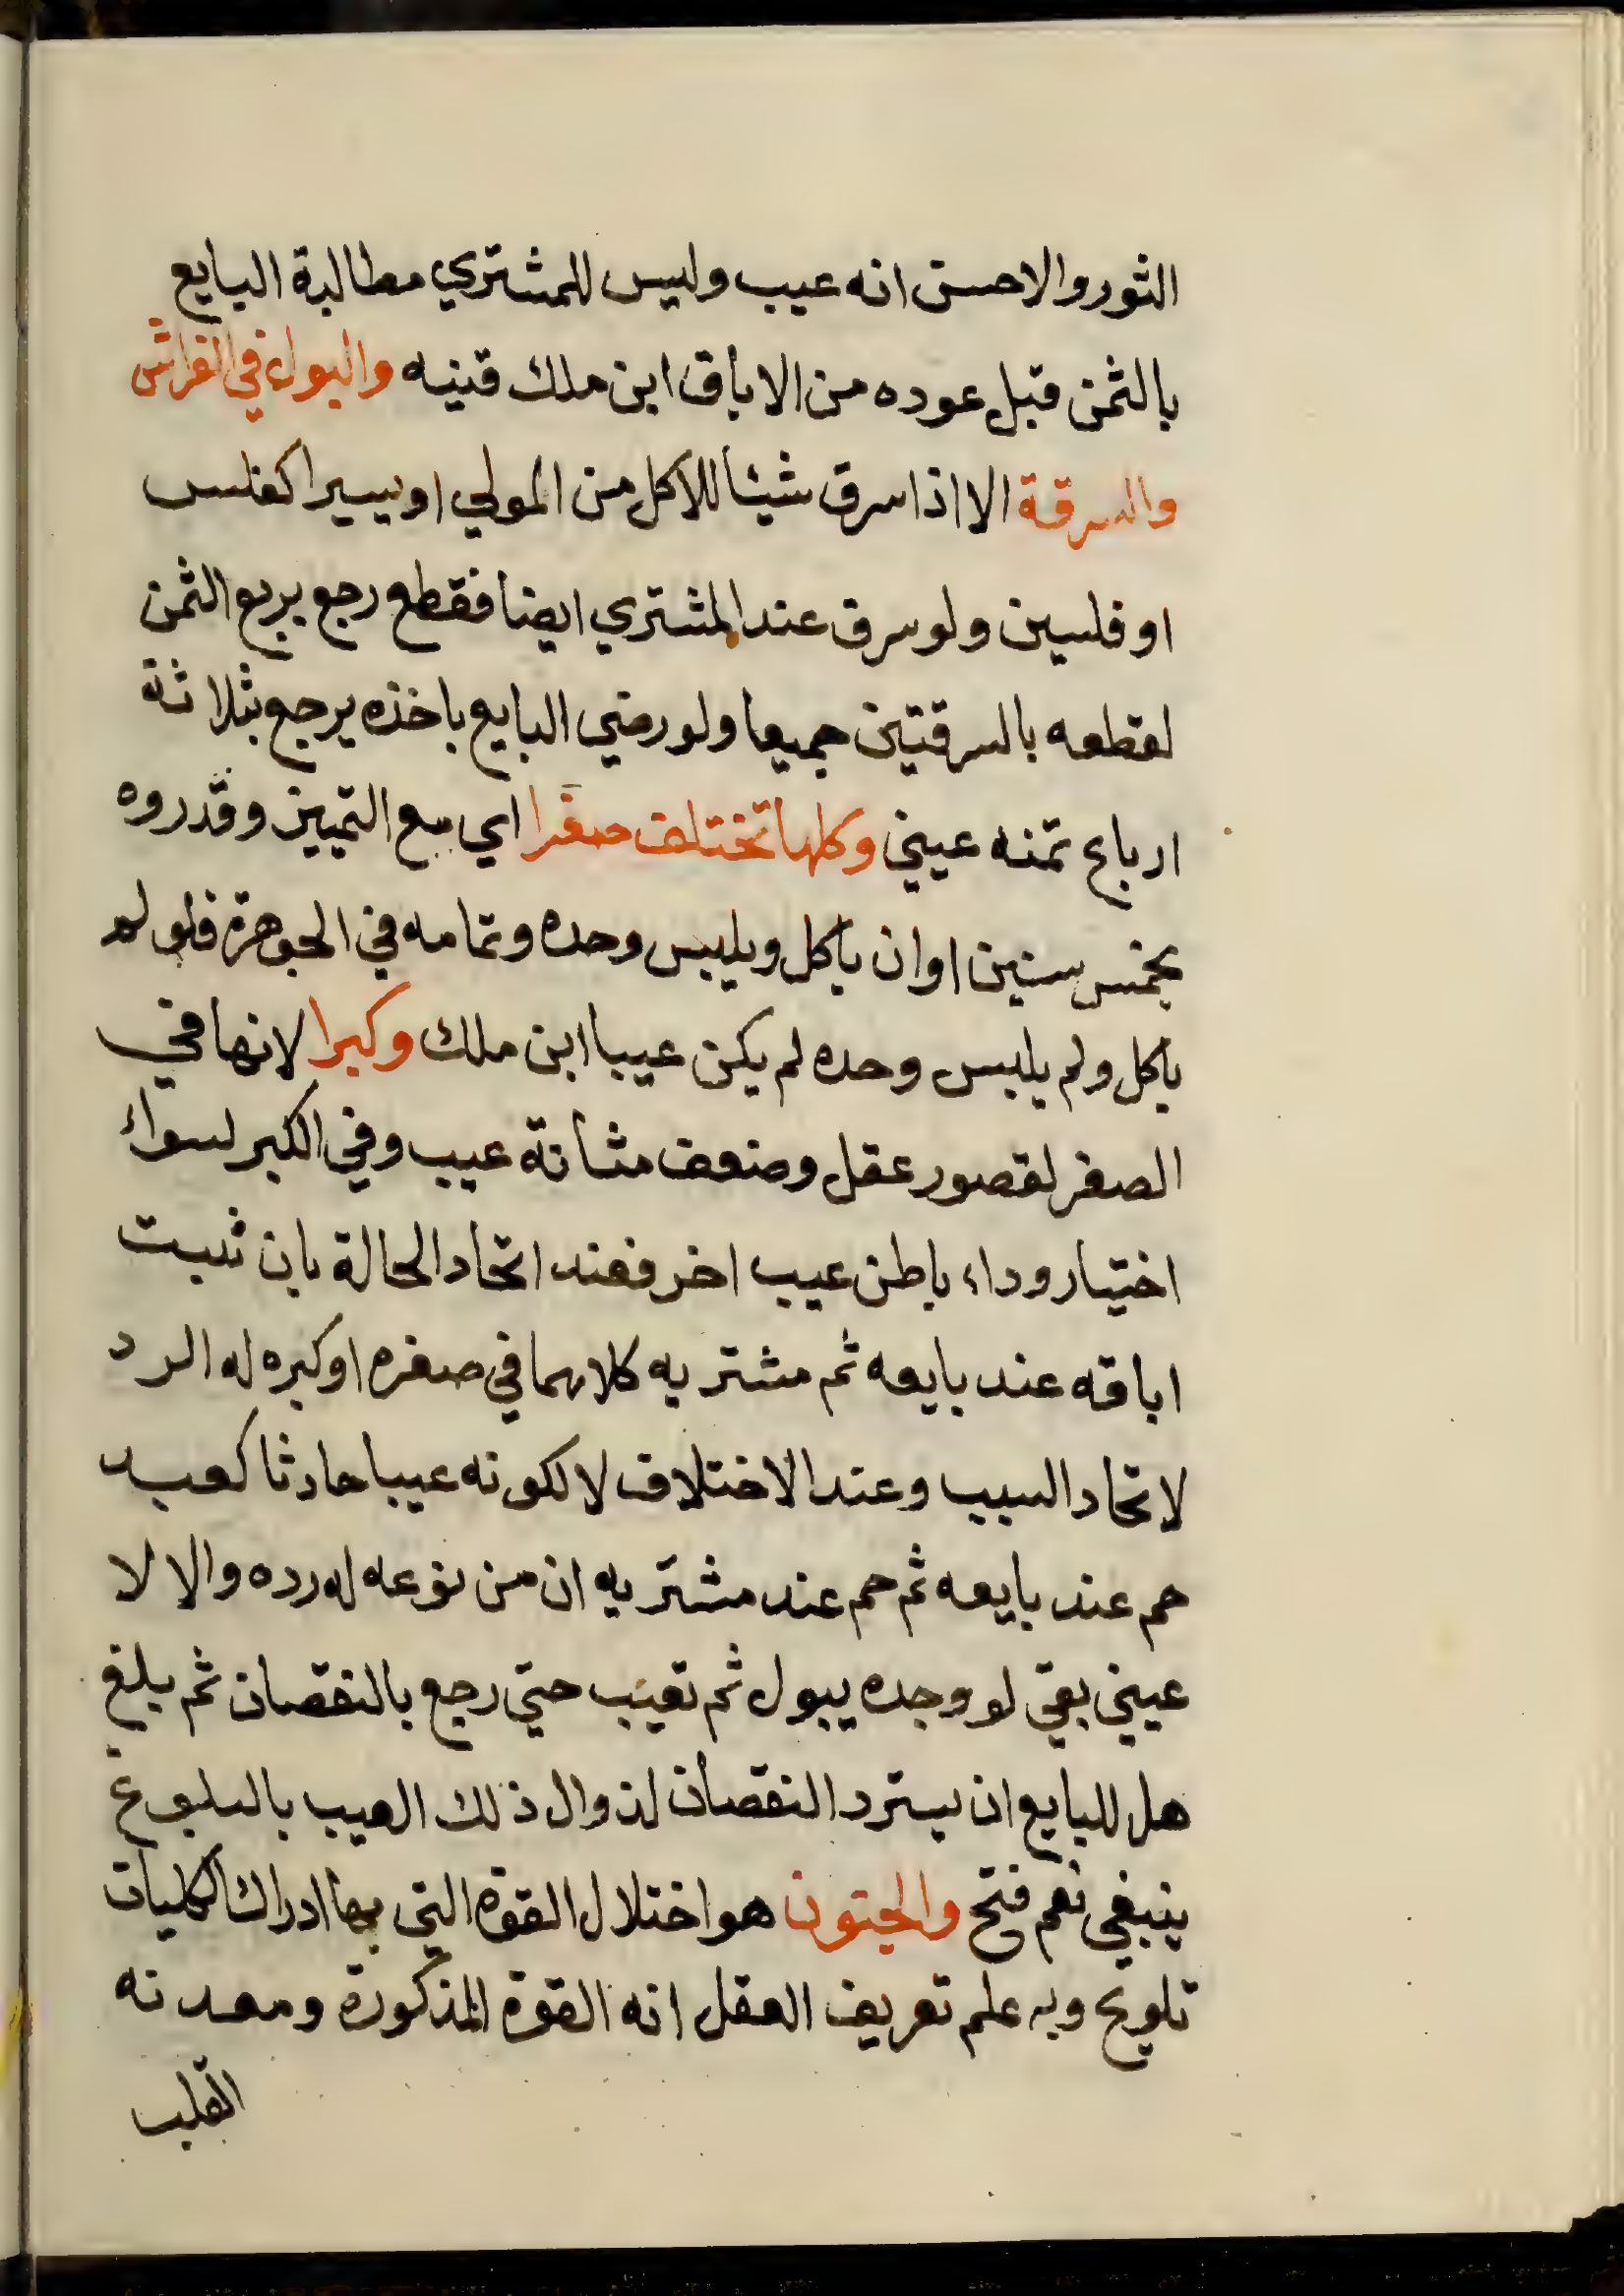 الثور والاحسن انه عيب وليس للمشتري مطالبة البايع
بالثمن قبل عوده من الاباق ابن ملك قنيه والبول في الفراش
والسرقة الا اذا سرق شيئا للاكل من المولي او يسيرا كفلس
او فلسين ولو سرق عند المشتري ايضا فقطع رجع بربع الثمن
لقطعه بالسرقتين جميعا ولو رضي البايع باخذه يرجع بثلاثة
ارباع ثمنه عيني وكلها تختلف صغرا اي مع التمييز وقدروه
بخمس سنين او ان ياكل ويلبس وحده وتمامه في الجوهرة فلو لم
ياكل ولم يلبس وحده لم يكن عيبا ابن ملك وكبرا لانها في
الصغر لقصور عقل وضعف مثانة عيب وفي الكبر لسواء
اختيار وداء باطن عيب اخر فعند اتحاد الحالة بان ثبت
اباقه عند بايعه ثم مشتريه كلاهما في صغره او كبره له الرد
لاتحاد السبب وعند الاختلاف لا لكونه عيبا حادثا كعبد
حم عند بايعه ثم حم عند مشتريه ان من نوعه له رده والا لا
عيني بقي لو وجده يبول ثم تعيب حتي رجع بالنقصان ثم بلغ
هل للبايع ان يسترد النقصان لزوال ذلك العيب بالبلوغ
ينبغي نعم فتح والجنون هو اختلال القوة التي بها ادراك الكليات
تلويح وبه علم تعريف العقل انه القوة المذكورة ومعدنه
القلب